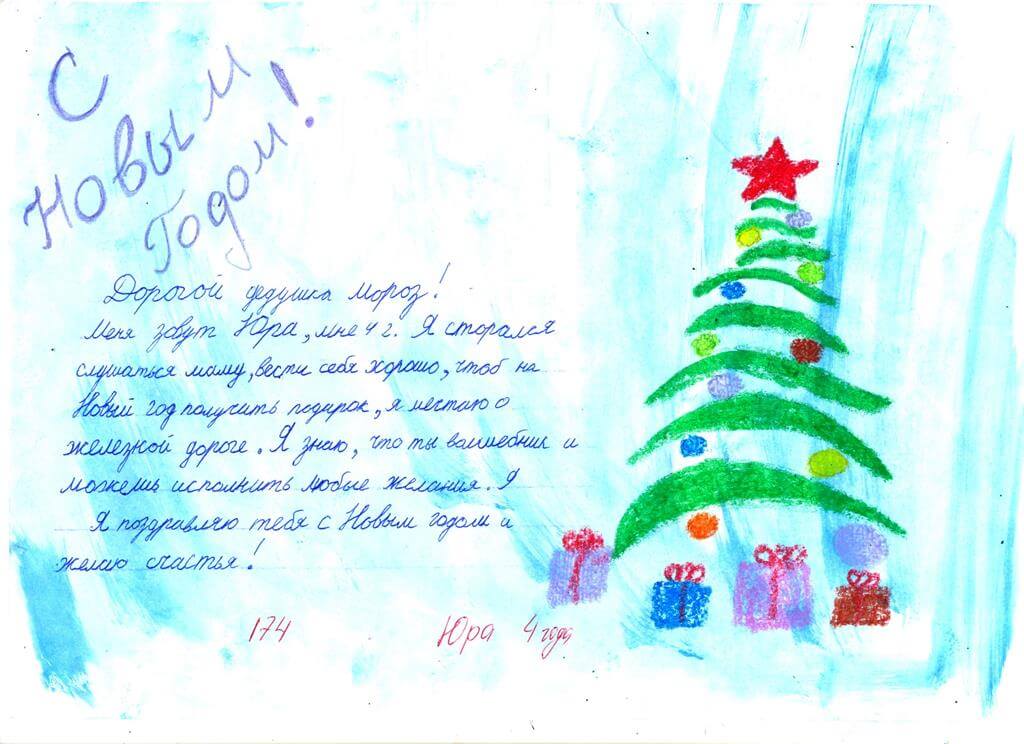 С
Новым
Годом!
Дорогой дедушка Мороз!
Меня зовут Юра, мне 4 г. Я сторался
слушаться маму, вести себя хорошо, чтоб на
Новый год получить подарок, я мечтаю о
железной дороге. Я знаю, что ты волшебник и
можешь исполнить любые желания. Я
Я поздравляю тебя с Новым годом и
желаю счастья!
174
Юра 4 года